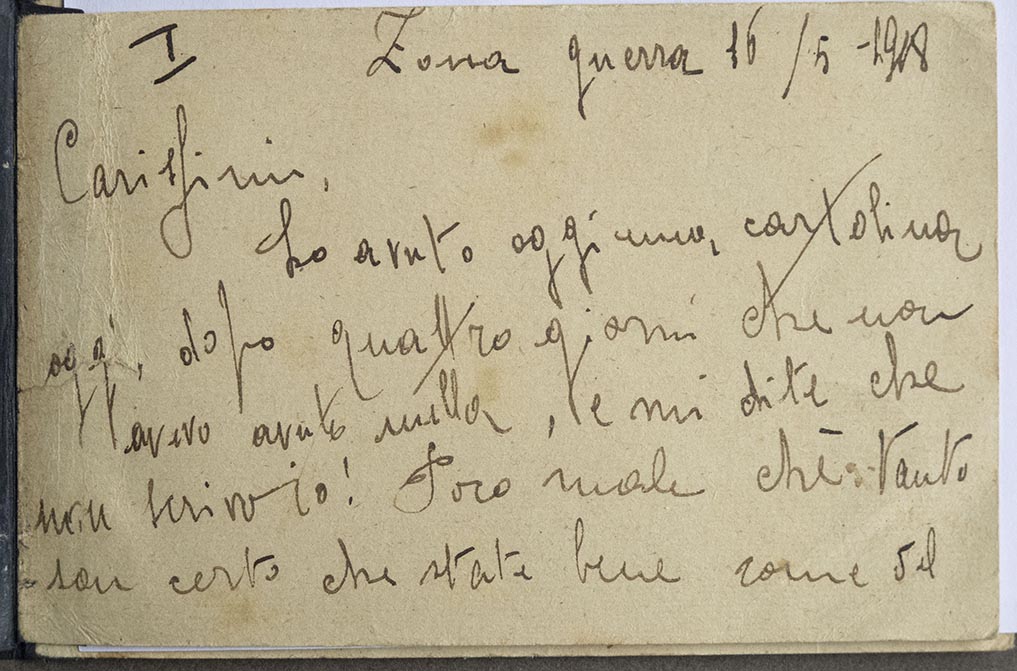 I Zona guerra 16/5-1918
Carissimi,
Ho avuto oggi una cartolina
oggi, dopo quattro giorni che non
avevo avuto nulla, e mi dite che
non scrivo io! Poco male chè tanto
son certo che state bene come del